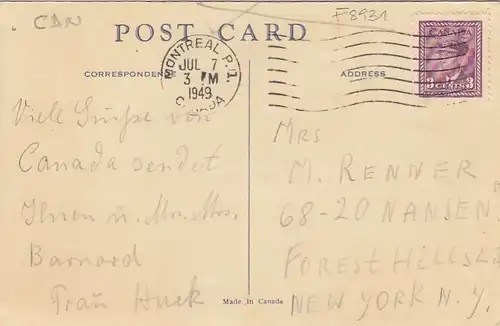 CDN
F8931
POST CARD
MONTREAL P.Q.
JUL 7
3 PM
1949
CANADA
CANADA
3 CENTS 3
CORRESPONDENCE
ADDRESS
Viele Grüße von
Canada sendet
Ihnen u. Mr. Mrs.
Barnard
Frau Huck
MRS
M. RENNER
68-20 NANSEN
FOREST HILLS L.I
NEW YORK N.Y.
Made in Canada